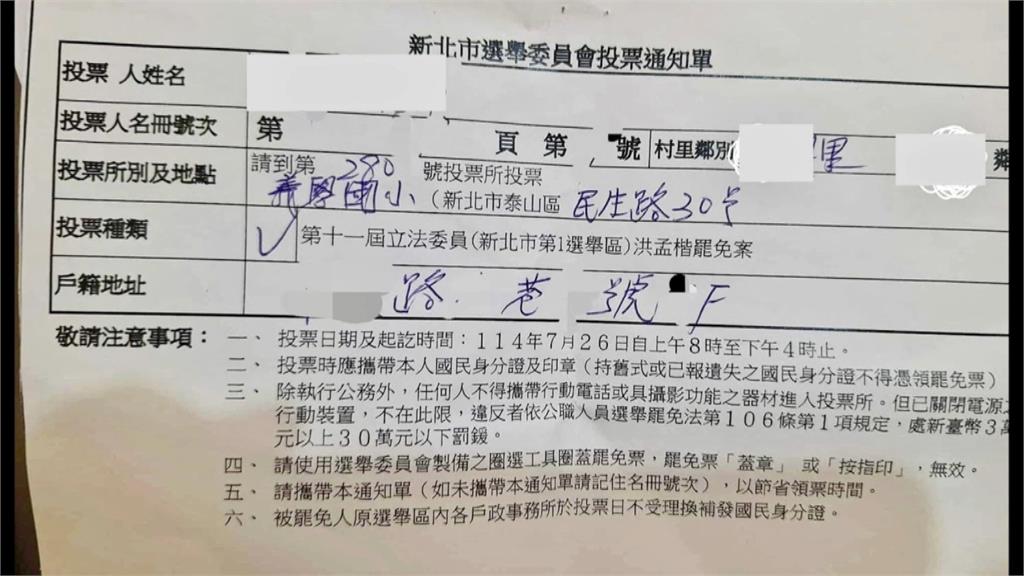 新北市選舉委員會投票通知單
投票人姓名
投票人名冊號次 第 頁第 號 村里鄰別 里 鄰
投票所別及地點 請到第280號投票所投票
義學國小 (新北市泰山區 民生路30号
投票種類 ✓ 第十一屆立法委員(新北市第1選舉區)洪孟楷罷免案
戶籍地址 路 巷 號 F
敬請注意事項：一、投票日期及起訖時間：114年7月26日自上午8時至下午4時止。
二、投票時應攜帶本人國民身分證及印章（持舊式或已報遺失之國民身分證不得憑領罷免票）
三、除執行公務外，任何人不得攜帶行動電話或具攝影功能之器材進入投票所。但已關閉電源之
行動裝置，不在此限，違反者依公職人員選舉罷免法第106條第1項規定，處新臺幣3萬
元以上30萬元以下罰鍰。
四、請使用選舉委員會製備之圈選工具圈蓋罷免票，罷免票「蓋章」或「按指印」，無效。
五、請攜帶本通知單（如未攜帶本通知單請記住名冊號次），以節省領票時間。
六、被罷免人原選舉區內各戶政事務所於投票日不受理換補發國民身分證。